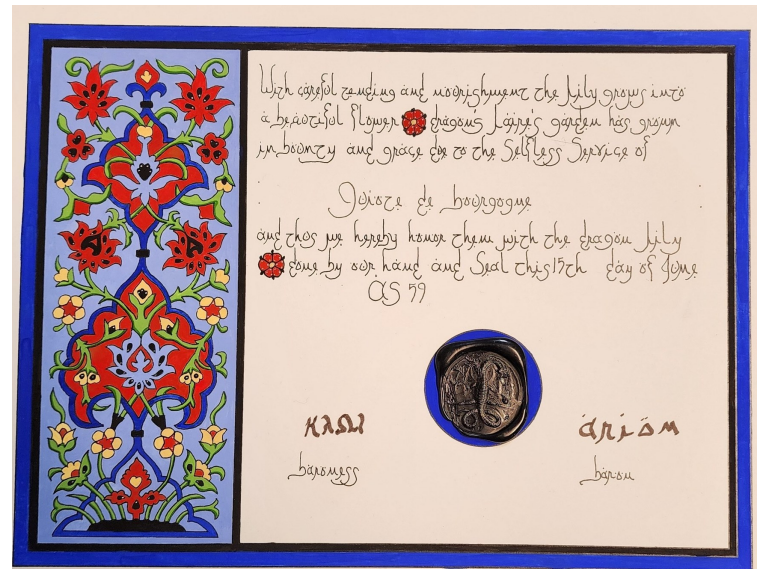 With careful tending and nourishment the lily grows into
a beautiful flower dragons laire's garden has grown
in bounty and grace due to the Selfless Service of
Juiote de bourgogne
and thus we hereby honor them with the dragon lily
done by our hand and Seal this 15th day of June
AS 59
ariom
baroness
baron